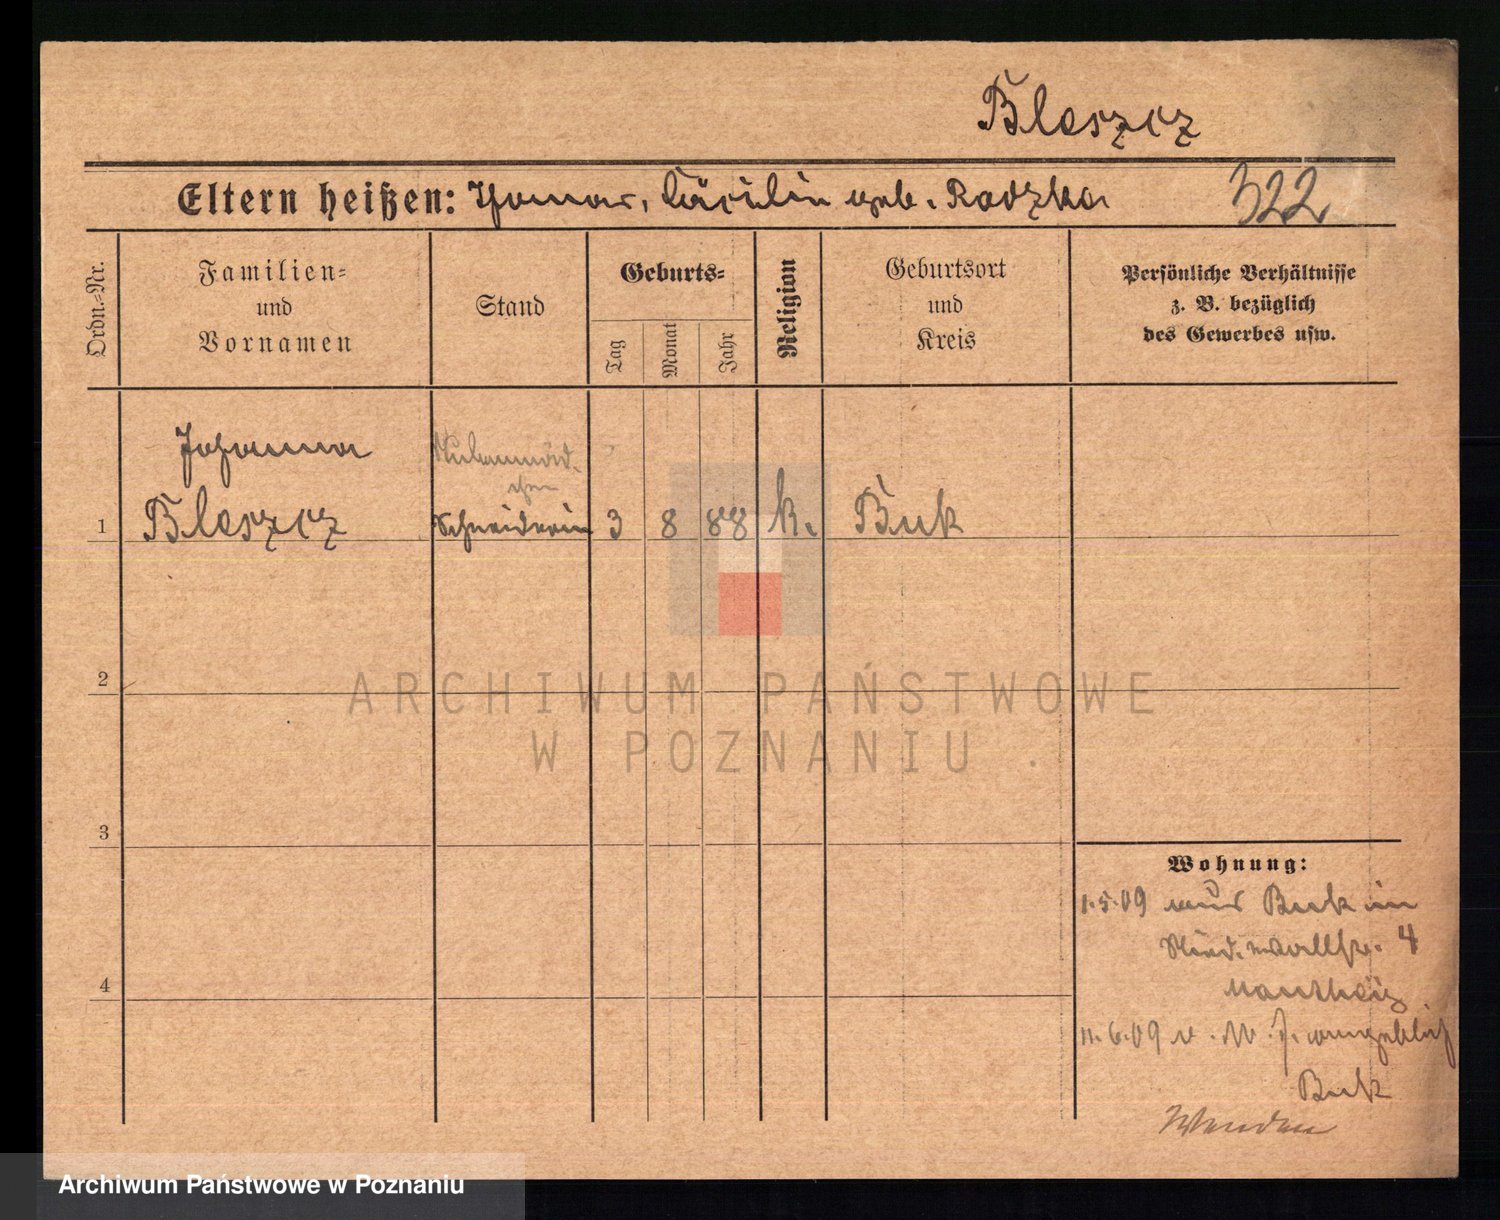 Bleszcz
Eltern heißen: Thomas, Cäcilia geb. Radzka 322
Ordn.=Nr.
Familien=
und
Vornamen
Stand
Geburts=
Tag
Monat
Jahr
Religion
Geburtsort
und
Kreis
Persönliche Verhältnisse
z. B. bezüglich
des Gewerbes usw.
Johanna
Stubenmäd-
chen
1 Bleszcz Schneiderin 3 8 88 k. Buk
2
ARCHIWUM PAŃSTWOWE
W POZNANIU
3
Wohnung:
1.5.09 aus Buk in
4
4
11.6.09 v. angeblich
Buk
Wenden
Archiwum Państwowe w Poznaniu